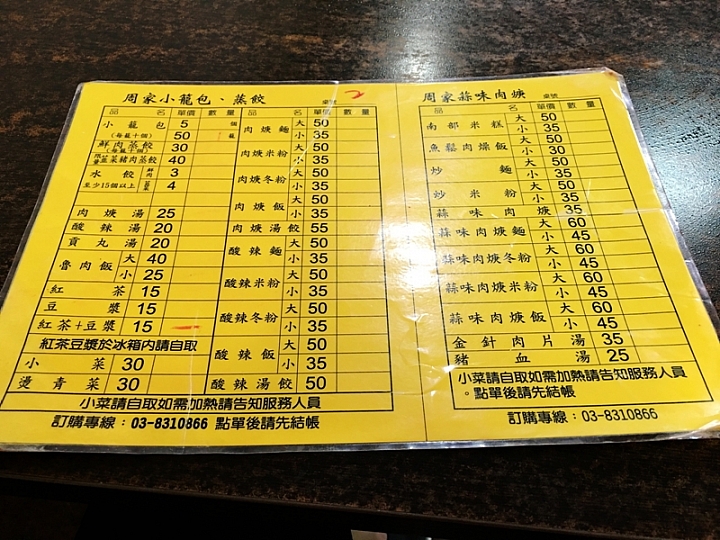 周家小籠包、蒸餃 桌號 2
品 名 單價 數量
小籠包 5 個
(每籠十個) 50 籠
鮮肉蒸餃 30
(每籠十個)
韭菜豬肉蒸餃 40
水餃 鮮肉 3
至少15個以上 韭菜 4
肉焿湯 25
酸辣湯 20
貢丸湯 20
魯肉飯 大 40
小 25
紅茶 15
豆漿 15
紅茶+豆漿 15
紅茶豆漿於冰箱內請自取
小菜 30
燙青菜 30
品 名 單價 數量
肉焿麵 大 50
小 35
肉焿米粉 大 50
小 35
肉焿冬粉 大 50
小 35
肉焿飯 大 50
小 35
肉焿湯餃 55
酸辣麵 大 50
小 35
酸辣米粉 大 50
小 35
酸辣冬粉 大 50
小 35
酸辣飯 大 50
小 35
酸辣湯餃 50
小菜請自取如需加熱請告知服務人員
訂購專線：03-8310866 點單後請先結帳
周家蒜味肉焿 桌號
品 名 單價 數量
南部米糕 大 50
小 35
魚鬆肉燥飯 大 50
小 30
炒麵 大 50
小 35
炒米粉 大 50
小 35
蒜味肉焿 35
蒜味肉焿麵 大 60
小 45
蒜味肉焿冬粉 大 60
小 45
蒜味肉焿米粉 大 60
小 45
蒜味肉焿飯 大 60
小 45
金針肉片湯 35
豬血湯 25
小菜請自取如需加熱請告知服務人員
。點單後請先結帳
訂購專線：03-8310866